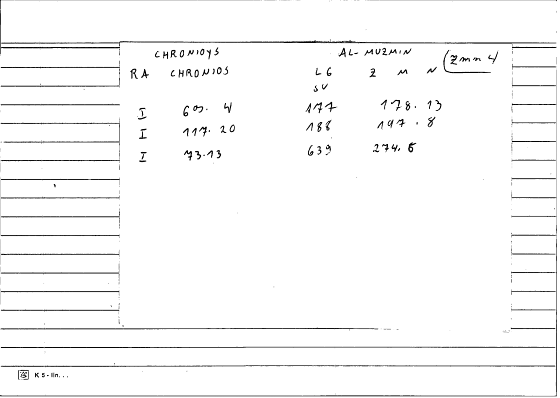 CHRONIOYS AL-MUZMIN (Zmn 4)
RA CHRONIOS LG Z M N
SU
I 609. 4 177 178. 13
I 117. 20 188 197. 8
I 73.13 639 274. 6
K 5 - lin. . .